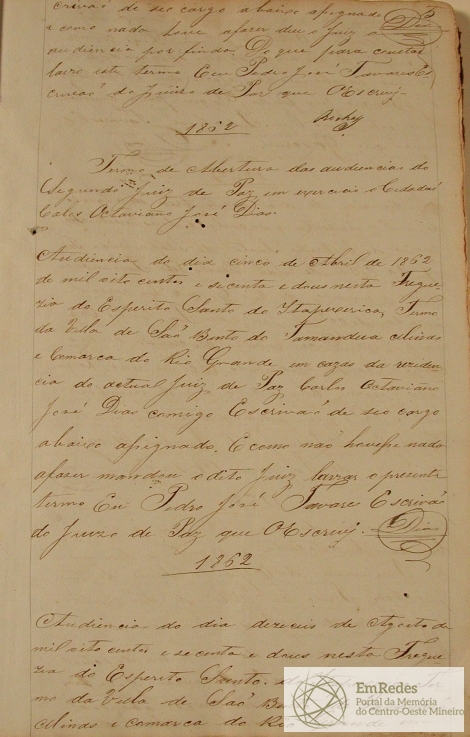 crivaõ de seo cargo abaixo asignado
e como nada houve afazer deu o Juiz a
audiencia por finda. Do que para constar
lavro este termo Eu Pedro José Tavares Es
crivaõ do Juizo de Paz que OEscrevy.
1862
Termo de Abertura das audiencias do
Segundo Juiz de Paz em exercicio o Cidadaõ
Calos Octaviano José Dias.
Audiencia do dia cinco de Abril de 1862
de mil oito centos e secenta e dous nesta Fregue
zia do Espirito Santo do Itapeserica, Termo
da Villa de Saõ Bento do Tamandua Minas
e Comarca do Rio Grande em cazas da rezidên
cia do actual Juiz de Paz Carlos Octaviano
José Dias comigo Escrivaõ de seo cargo
abaixo asignado. E como naõ houvesse nada
afazer mandou o dito Juiz lavrar o presente
termo Eu Pedro José Tavare Escrivaõ
do Juizo de Paz que OEscrevy. Dias
1862
Audiencia do dia dezeseis de Agosto de
mil oito centos e secenta e dous nesta Fregue
zia do Espirito Santo
mo da Villa de Saõ
Minas e comarca do
EmRedes
Portal da Memória
do Centro-Oeste Mineiro